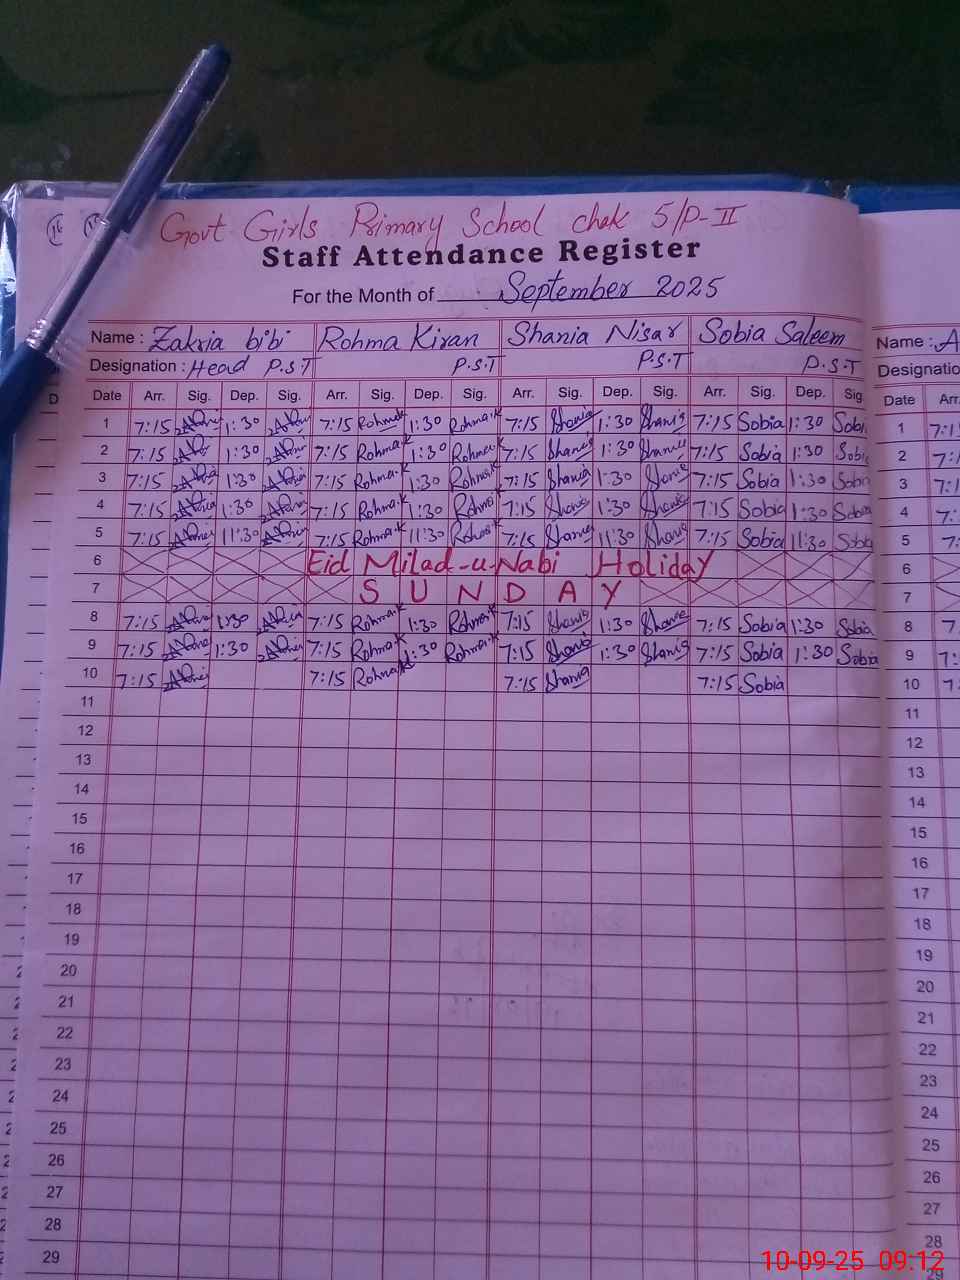 16
Govt Girls Primary School chak 5/P-II
Staff Attendance Register
For the Month of September 2025
Name : Zakria bibi Rohma Kiran Shania Nisar Sobia Saleem Name : A
Designation : Head P.S.T P.S.T P.S.T P.S.T Designatio
D Date Arr. Sig. Dep. Sig. Arr. Sig. Dep. Sig. Arr. Sig. Dep. Sig. Arr. Sig. Dep. Sig. Date Arr.
1 7:15 1:30 7:15 Rohma.K 1:30 Rohma.K 7:15 Shania 1:30 Shania 7:15 Sobia 1:30 Sobia 1 7:1
2 7:15 1:30 7:15 Rohma.K 1:30 Rohma.K 7:15 Shania 1:30 Shania 7:15 Sobia 1:30 Sobia 2 7:
3 7:15 1:30 7:15 Rohma.K 1:30 Rohma.K 7:15 Shania 1:30 Shania 7:15 Sobia 1:30 Sobia 3 7:1
4 7:15 1:30 7:15 Rohma.K 1:30 Rohma.K 7:15 Shania 1:30 Shania 7:15 Sobia 1:30 Sobia 4 7:
5 7:15 11:30 7:15 Rohma.K 11:30 Rohma.K 7:15 Shania 11:30 Shania 7:15 Sobia 11:30 Sobia 5 7:
6 Eid Milad-u-Nabi Holiday 6
7 SUNDAY 7
8 7:15 1:30 7:15 Rohma.K 1:30 Rohma.K 7:15 Shania 1:30 Shania 7:15 Sobia 1:30 Sobia 8 7
9 7:15 1:30 7:15 Rohma.K 1:30 Rohma.K 7:15 Shania 1:30 Shania 7:15 Sobia 1:30 Sobia 9 7:
10 7:15 7:15 Rohma.K 7:15 Shania 7:15 Sobia 10 7
11 11
12 12
13 13
14 14
15 15
16 16
17 17
18 18
19 19
20 20
21 21
22 22
23 23
24 24
25 25
26 26
27 27
28 28
29 29
10-09-25 09:12